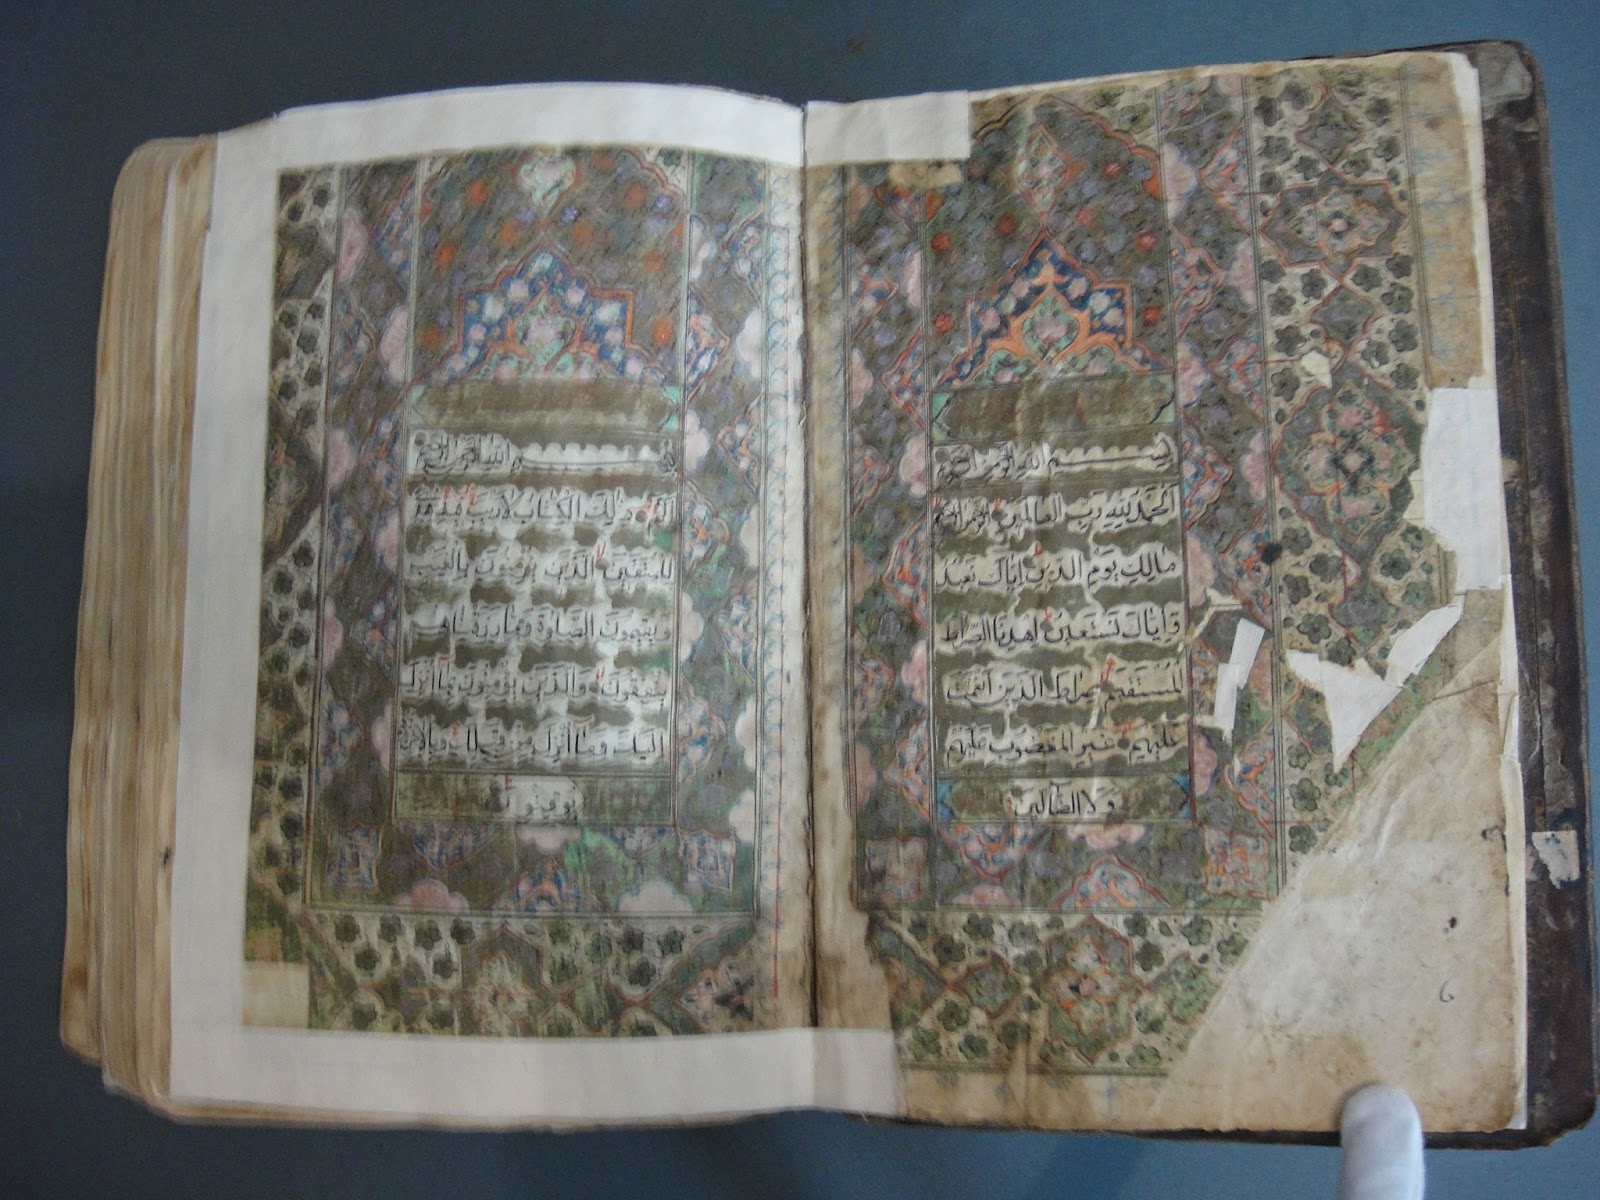 بسم الله الرحمن الرحيم
الحمد لله رب العالمين الرحمن الرحيم
مالك يوم الدين اياك نعبد
واياك نستعين اهدنا الصراط
المستقيم صراط الذين انعمت
عليهم غير المغضوب عليهم
ولا الضالين
بسم الله الرحمن الرحيم
الم ذلك الكتاب لا ريب فيه هدى
للمتقين الذين يؤمنون بالغيب
ويقيمون الصلوة ومما رزقناهم
ينفقون والذين يؤمنون بما انزل
اليك وما انزل من قبلك وبالاخرة
يوقنون